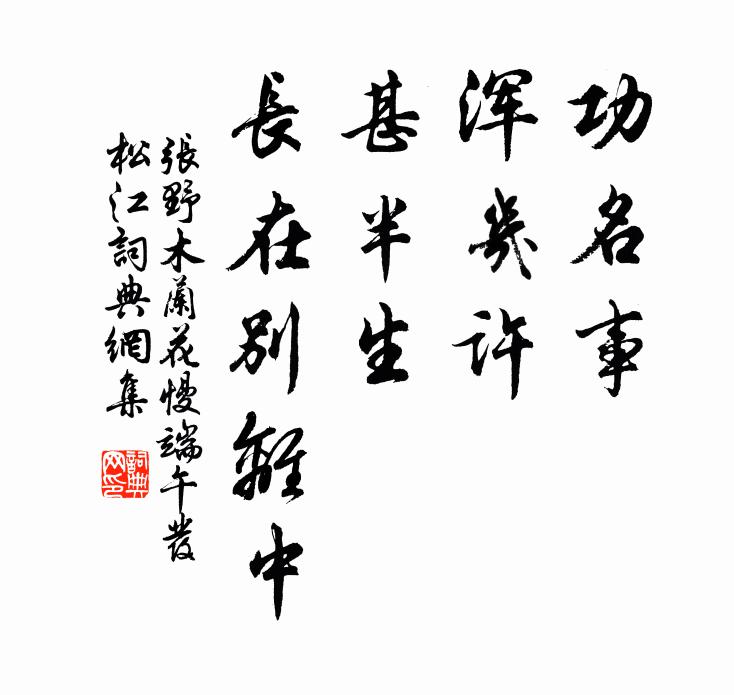 功名事
浑幾许
甚半生
長在别離中
張野木蘭花慢端午發
松江詞典網集
詞典
网印